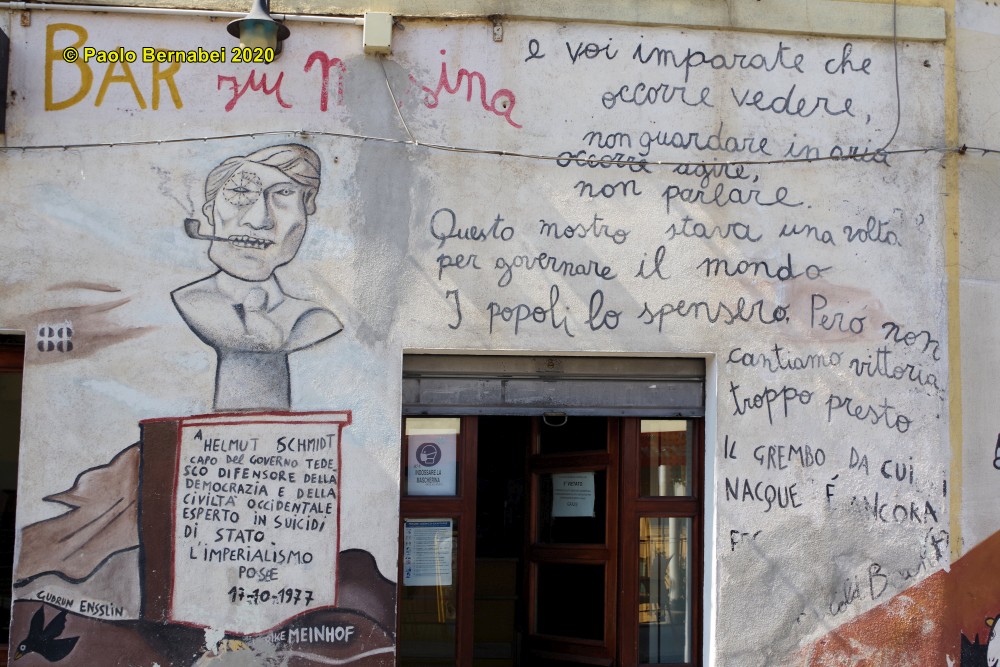 © Paolo Bernabei 2020
BAR
e voi imparate che
occorre vedere,
non guardare in aria
occorre agire,
non parlare.
Questo mostro stava una volta
per governare il mondo
I popoli lo spensero. Però non
cantiamo vittoria
troppo presto
IL GREMBO DA CUI
NACQUE É ANCORA
88
A
HELMUT SCHMIDT
CAPO DEL GOVERNO TEDE
SCO DIFENSORE DELLA
DEMOCRAZIA E DELLA
CIVILTA' OCCIDENTALE
ESPERTO IN SUICIDI
DI STATO.
L'IMPERIALISMO
POSE
17-10-1977
GUDRUN ENSSLIN
MEINHOF
INDOSSARE LA
MASCHERINA